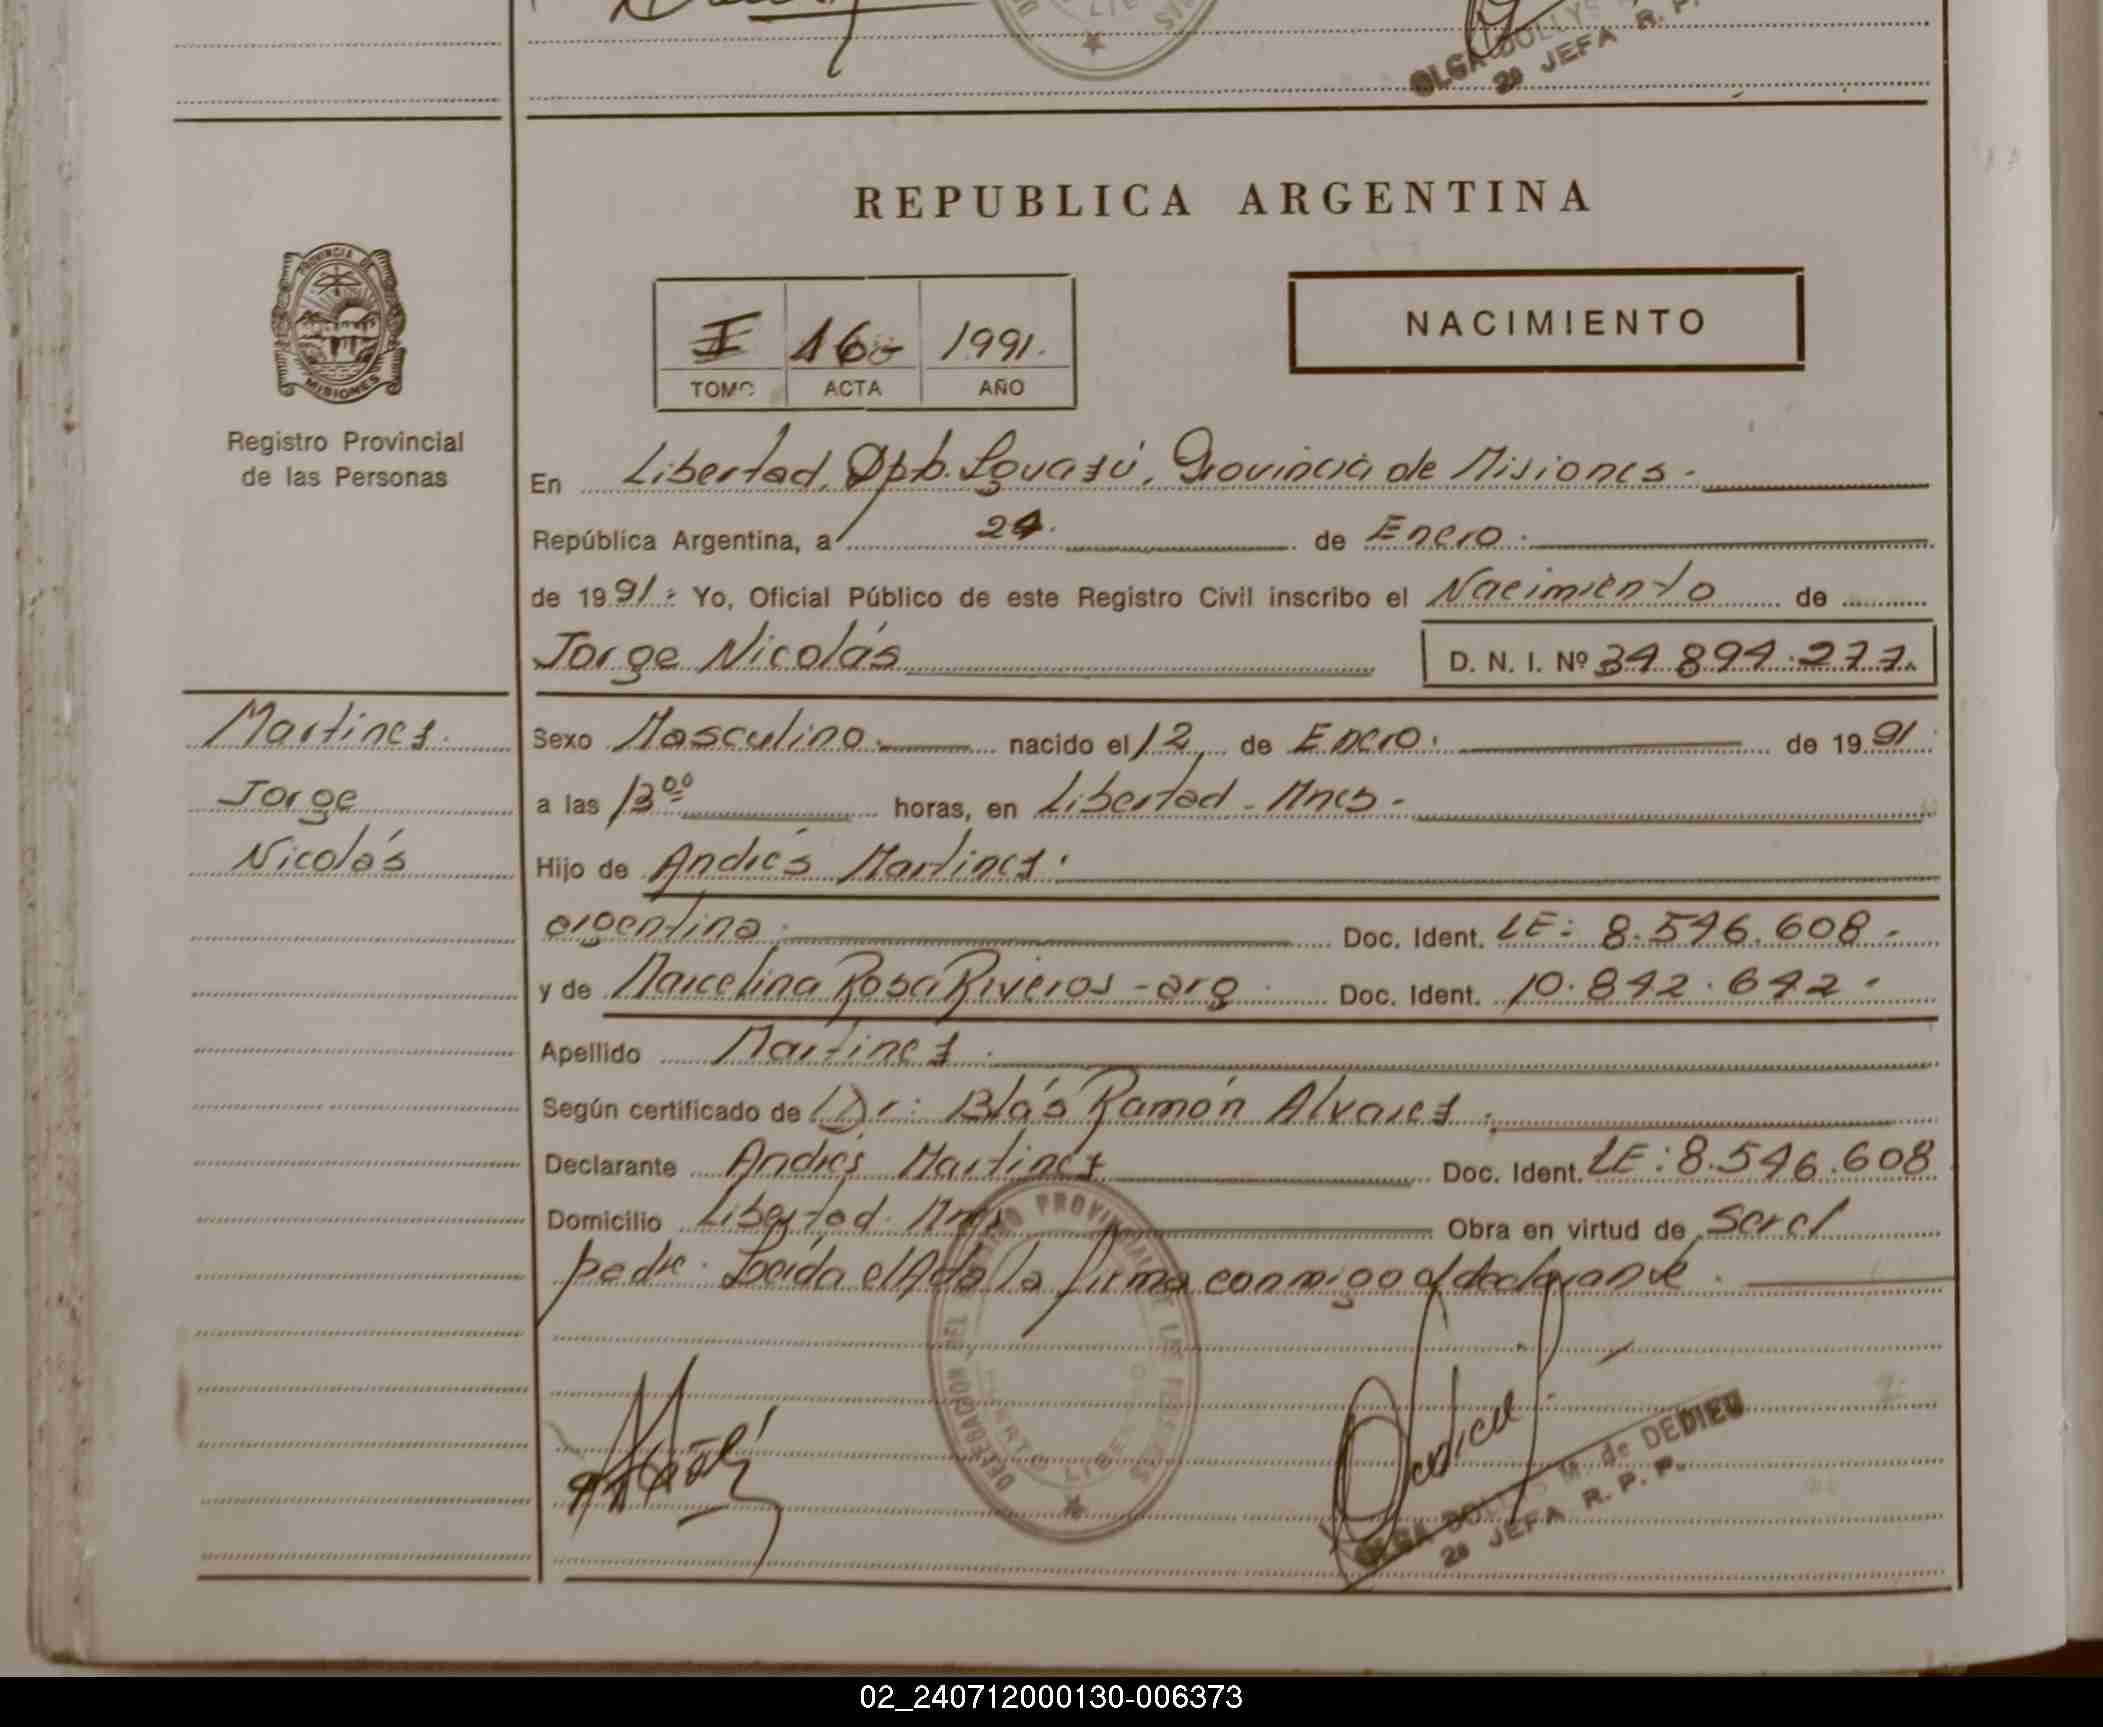 OLGA DOLLYS
2a JEFA R. P.
REPUBLICA ARGENTINA
PROVINCIA DE
MISIONES
Registro Provincial
de las Personas
I 16 1991.
TOMO ACTA AÑO
NACIMIENTO
En Libertad, Dpto. Iguazú, Provincia de Misiones.
República Argentina, a 24. de Enero.
de 1991. Yo, Oficial Público de este Registro Civil inscribo el Nacimiento de
Jorge Nicolás D. N. I. Nº 34.894.277.
Martinez.
Jorge
Nicolás
Sexo Masculino. nacido el 12 de Enero. de 1991
a las 13 00 horas, en Libertad - Mnes.
Hijo de Andrés Martinez.
argentina. Doc. Ident. LE: 8.546.608.
y de Marcelina Rosa Riveros - arg. Doc. Ident. 10.842.642.
Apellido Martinez.
Según certificado de Dr: Blás Ramón Alvarez.
Declarante Andrés Martinez Doc. Ident. LE: 8.546.608
Domicilio Libertad. Mnes Obra en virtud de Ser el
padre. Leída el Acta la firma conmigo el declarante.
DELEGACION DEL REGISTRO PROVINCIAL DE LAS PERSONAS
PUERTO LIBERTAD
OLGA DOLLYS M. de DEDIEU
2a JEFA R. P. P.
02_240712000130-006373